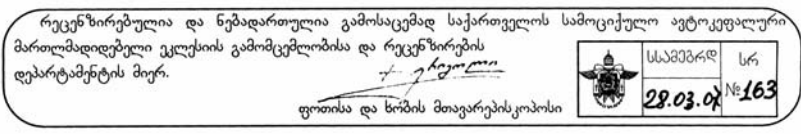 რეცენზირებულია და ნებადართულია გამოსაცემად საქართველოს სამოციქულო ავტოკეფალური
მართლმადიდებელი ეკლესიის გამომცემლობისა და რეცენზირების
დეპარტამენტის მიერ.
ფოთისა და ხობის მთავარეპისკოპოსი
სსამეგრდ სრ
28.03.07 №163